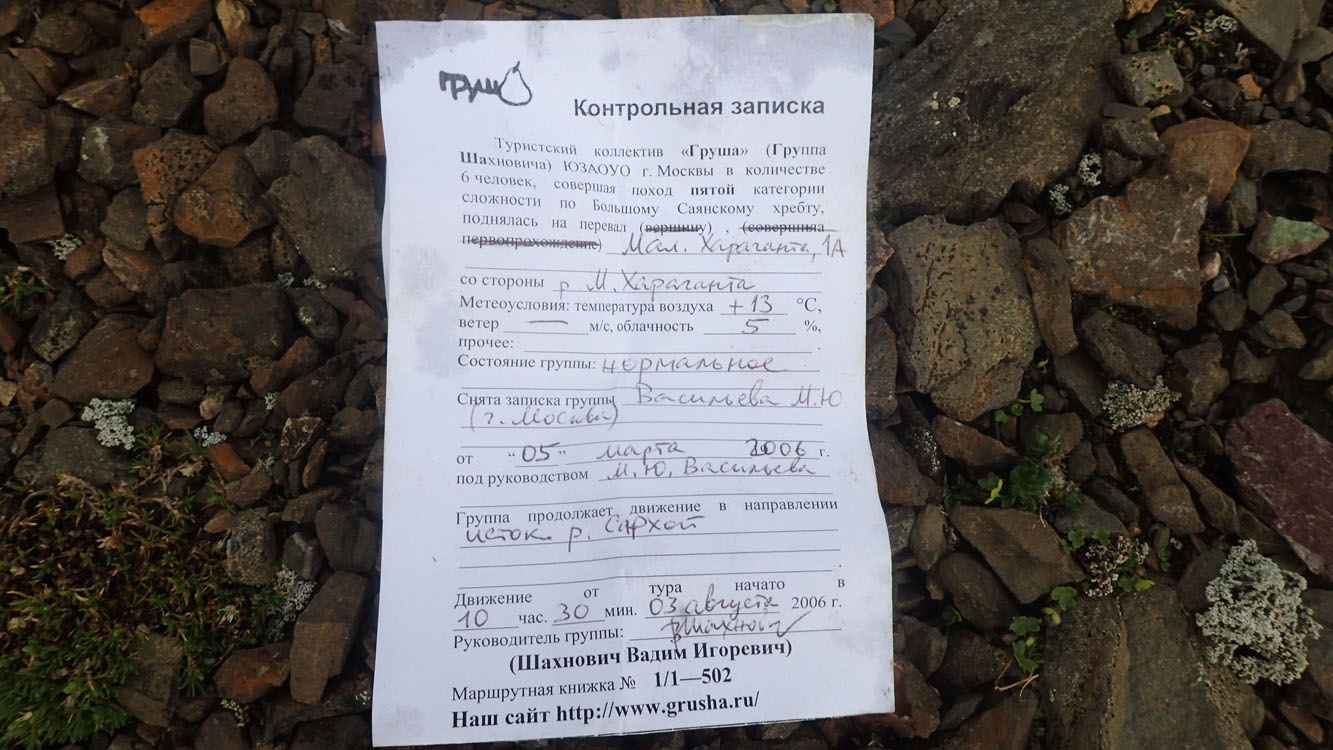 груш
Контрольная записка
Туристский коллектив «Груша» (Группа
Шахновича) ЮЗАОУО г. Москвы в количестве
6 человек, совершая поход пятой категории
сложности по Большому Саянскому хребту,
поднялась на перевал (вершину) , (совершила
первопрохождение) Мал. Хараганта, 1А
со стороны р М. Хараганта
Метеоусловия: температура воздуха +13 °С,
ветер — м/с, облачность 5 %,
прочее: .
Состояние группы: нормальное
Снята записка группы Васильева М.Ю
(г. Москва)
от “05” марта 2006 г.
под руководством М.Ю. Васильева
Группа продолжает движение в направлении
исток р. Сархой
.
Движение от тура начато в
10 час. 30 мин. 03 августа 2006 г.
Руководитель группы:
(Шахнович Вадим Игоревич)
Маршрутная книжка № 1/1—502
Наш сайт http://www.grusha.ru/